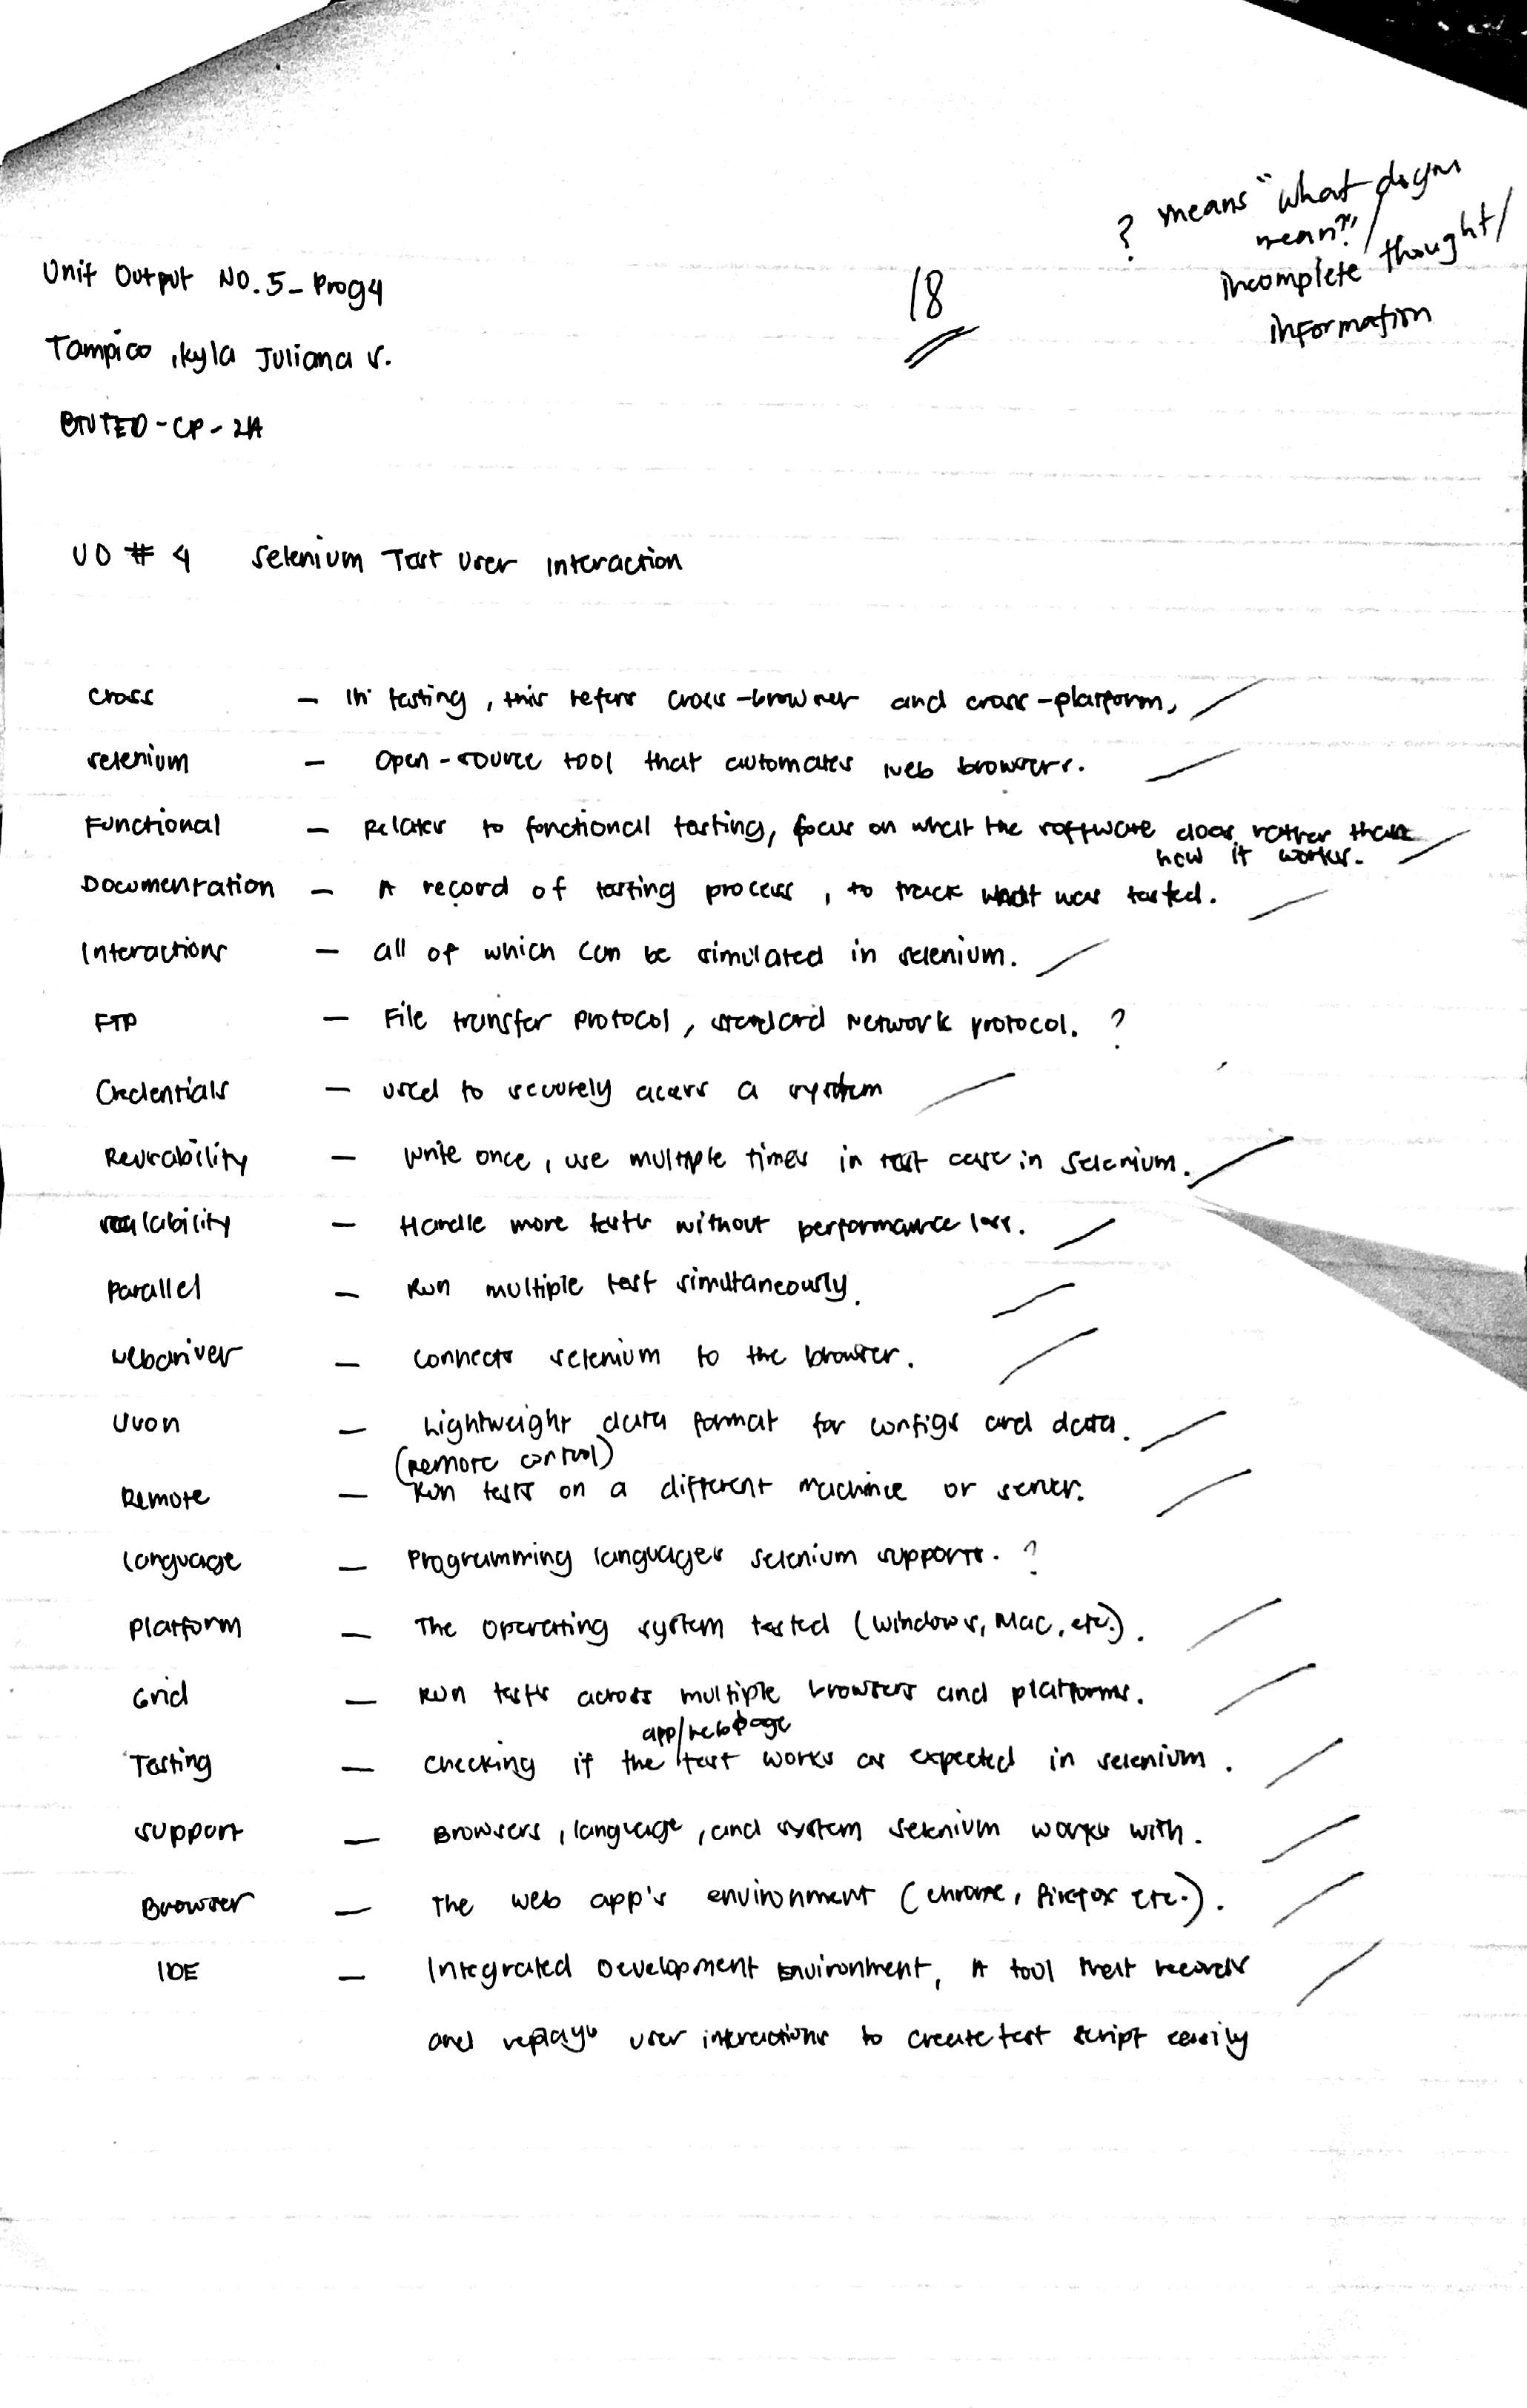 ? means "what do you
mean?"/
incomplete thought/
information
18
Unit Output No.5 - Prog4
Tampico, Kyla Juliana V.
BTVTED - CP - 2A
UO # 4 Selenium Test User Interaction
Cross - In testing, this refers cross-browser and cross-platform.
Selenium - Open-source tool that automates web browsers.
Functional - Relates to fonctional testing, focus on what the software does, rather than
how it works.
Documentation - A record of testing process, to track what was tested.
Interactions - all of which can be simulated in selenium.
FTP - File transfer protocol, standard Network protocol. ?
Credentials - used to securely access a system
Reusability - Write once, use multiple times in test case in Selenium.
scalability - Handle more tests without performance loss.
Parallel - Run multiple test simultaneously.
webdriver - Connects selenium to the browser.
- Lightweight data format for configs and data.
(Remote control)
Remote - Run tests on a different machine or server.
Language - Programming languages selenium supports. ?
Platform - The operating system tested (windows, Mac, etc.).
Grid - Run tests across multiple browsers and platforms.
app/webpage
Testing - Checking if the test works as expected in selenium.
support - Browsers, language, and system selenium works with.
Browser - The web app's environment (chrome, firefox etc.).
IDE - Integrated Development Environment, A tool that records
and replays user interactions to create test script easily